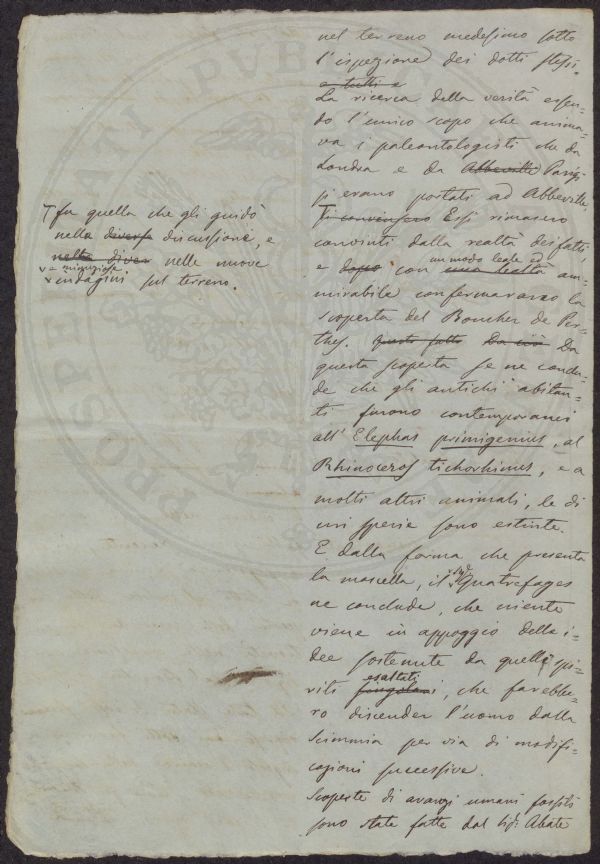 nel terreno medesimo sotto
l'ispezione dei dotti stessi.
e tutti e
La ricerca della verità essen=
do l'unico scopo che anima=
va i paleontologisti che da
Londra e da Abbeville Parigi
si erano portati ad Abbeville
Ti convensero Essi rimasero
convinti dalla realtà dei fatti,
e dopo con un modo leale ed una lealtà am=
mirabile confermarono la
scoperta del Boucher de Per=
thes. Questo fatto Da ciò Da
questa scoperta se ne conclu=
de che gli antichi abitan=
ti furono contemporanei
all'Elephas primigenius, al
Rhinoceros tichorhinus, e a
molti altri animali, le di
cui specie sono estinte.
E dalla forma che presenta
la mascella, il Sig. Quatrefages
ne conclude, che niente
viene in appoggio della i=
dee sostenute da quelli spi=
riti esaltati, che farebbe=
ro discender l'uomo dalla
Scimmia per via di modifi=
cazioni successive.
Scoperte di avanzi umani fossili
sono state fatte dal Sig. Abate
T fu quella che gli guidò
nella diverse discussione, e
nelle diver nelle nuove
v e minuziose
v indagini sul terreno.
PROSPERITATI PUBLICAE